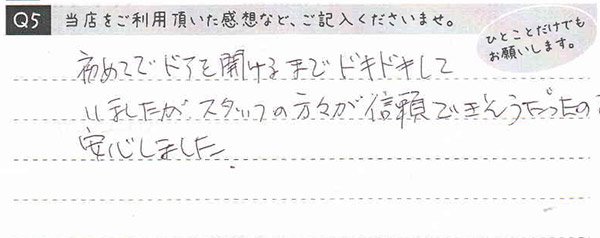 Q5 当店をご利用頂いた感想など、ご記入くださいませ。
ひとことだけでも
お願いします。
初めてでドアを開けるまでドキドキして
いましたが、スタッフの方々が信頼できそうだったの
安心しました。